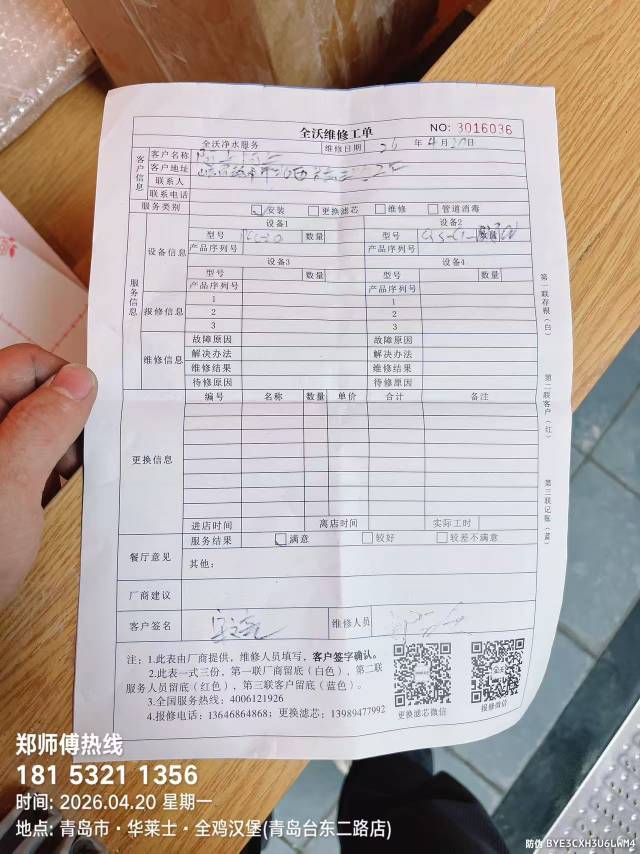 全沃维修工单
NO: 3016036
全沃净水服务 维修日期 26 年 4 月 20日
客户信息
客户名称
客户地址
联系人
联系电话
服务类别 安装 更换滤芯 维修 管道消毒
服务信息
设备信息
设备1 设备2
型号 数量 型号
产品序列号 产品序列号
设备3 设备4
型号 数量 型号 数量
产品序列号 产品序列号
报修信息
1 1
2 2
3 3
维修信息
故障原因 故障原因
解决办法 解决办法
维修结果 维修结果
待修原因 待修原因
更换信息
编号 名称 数量 单价 合计 备注
进店时间 离店时间 实际工时
餐厅意见
服务结果 满意 较好 较差不满意
其他：
厂商建议
客户签名 维修人员
注：1.此表由厂商提供，维修人员填写，客户签字确认。
2.此表一式三份，第一联厂商留底（白色），第二联
服务人员留底（红色），第三联客户留底（蓝色）。
3.全国服务热线：4006121926
4.报修电话：13646864868；更换滤芯：13989477992
更换滤芯微信
报修微信
第一联存根（白）
第二联客户（红）
第三联记账（蓝）
郑师傅热线
181 5321 1356
时间: 2026.04.20 星期一
地点: 青岛市·华莱士·全鸡汉堡(青岛台东二路店)
防伪 BYE3CXH3U6LWM4